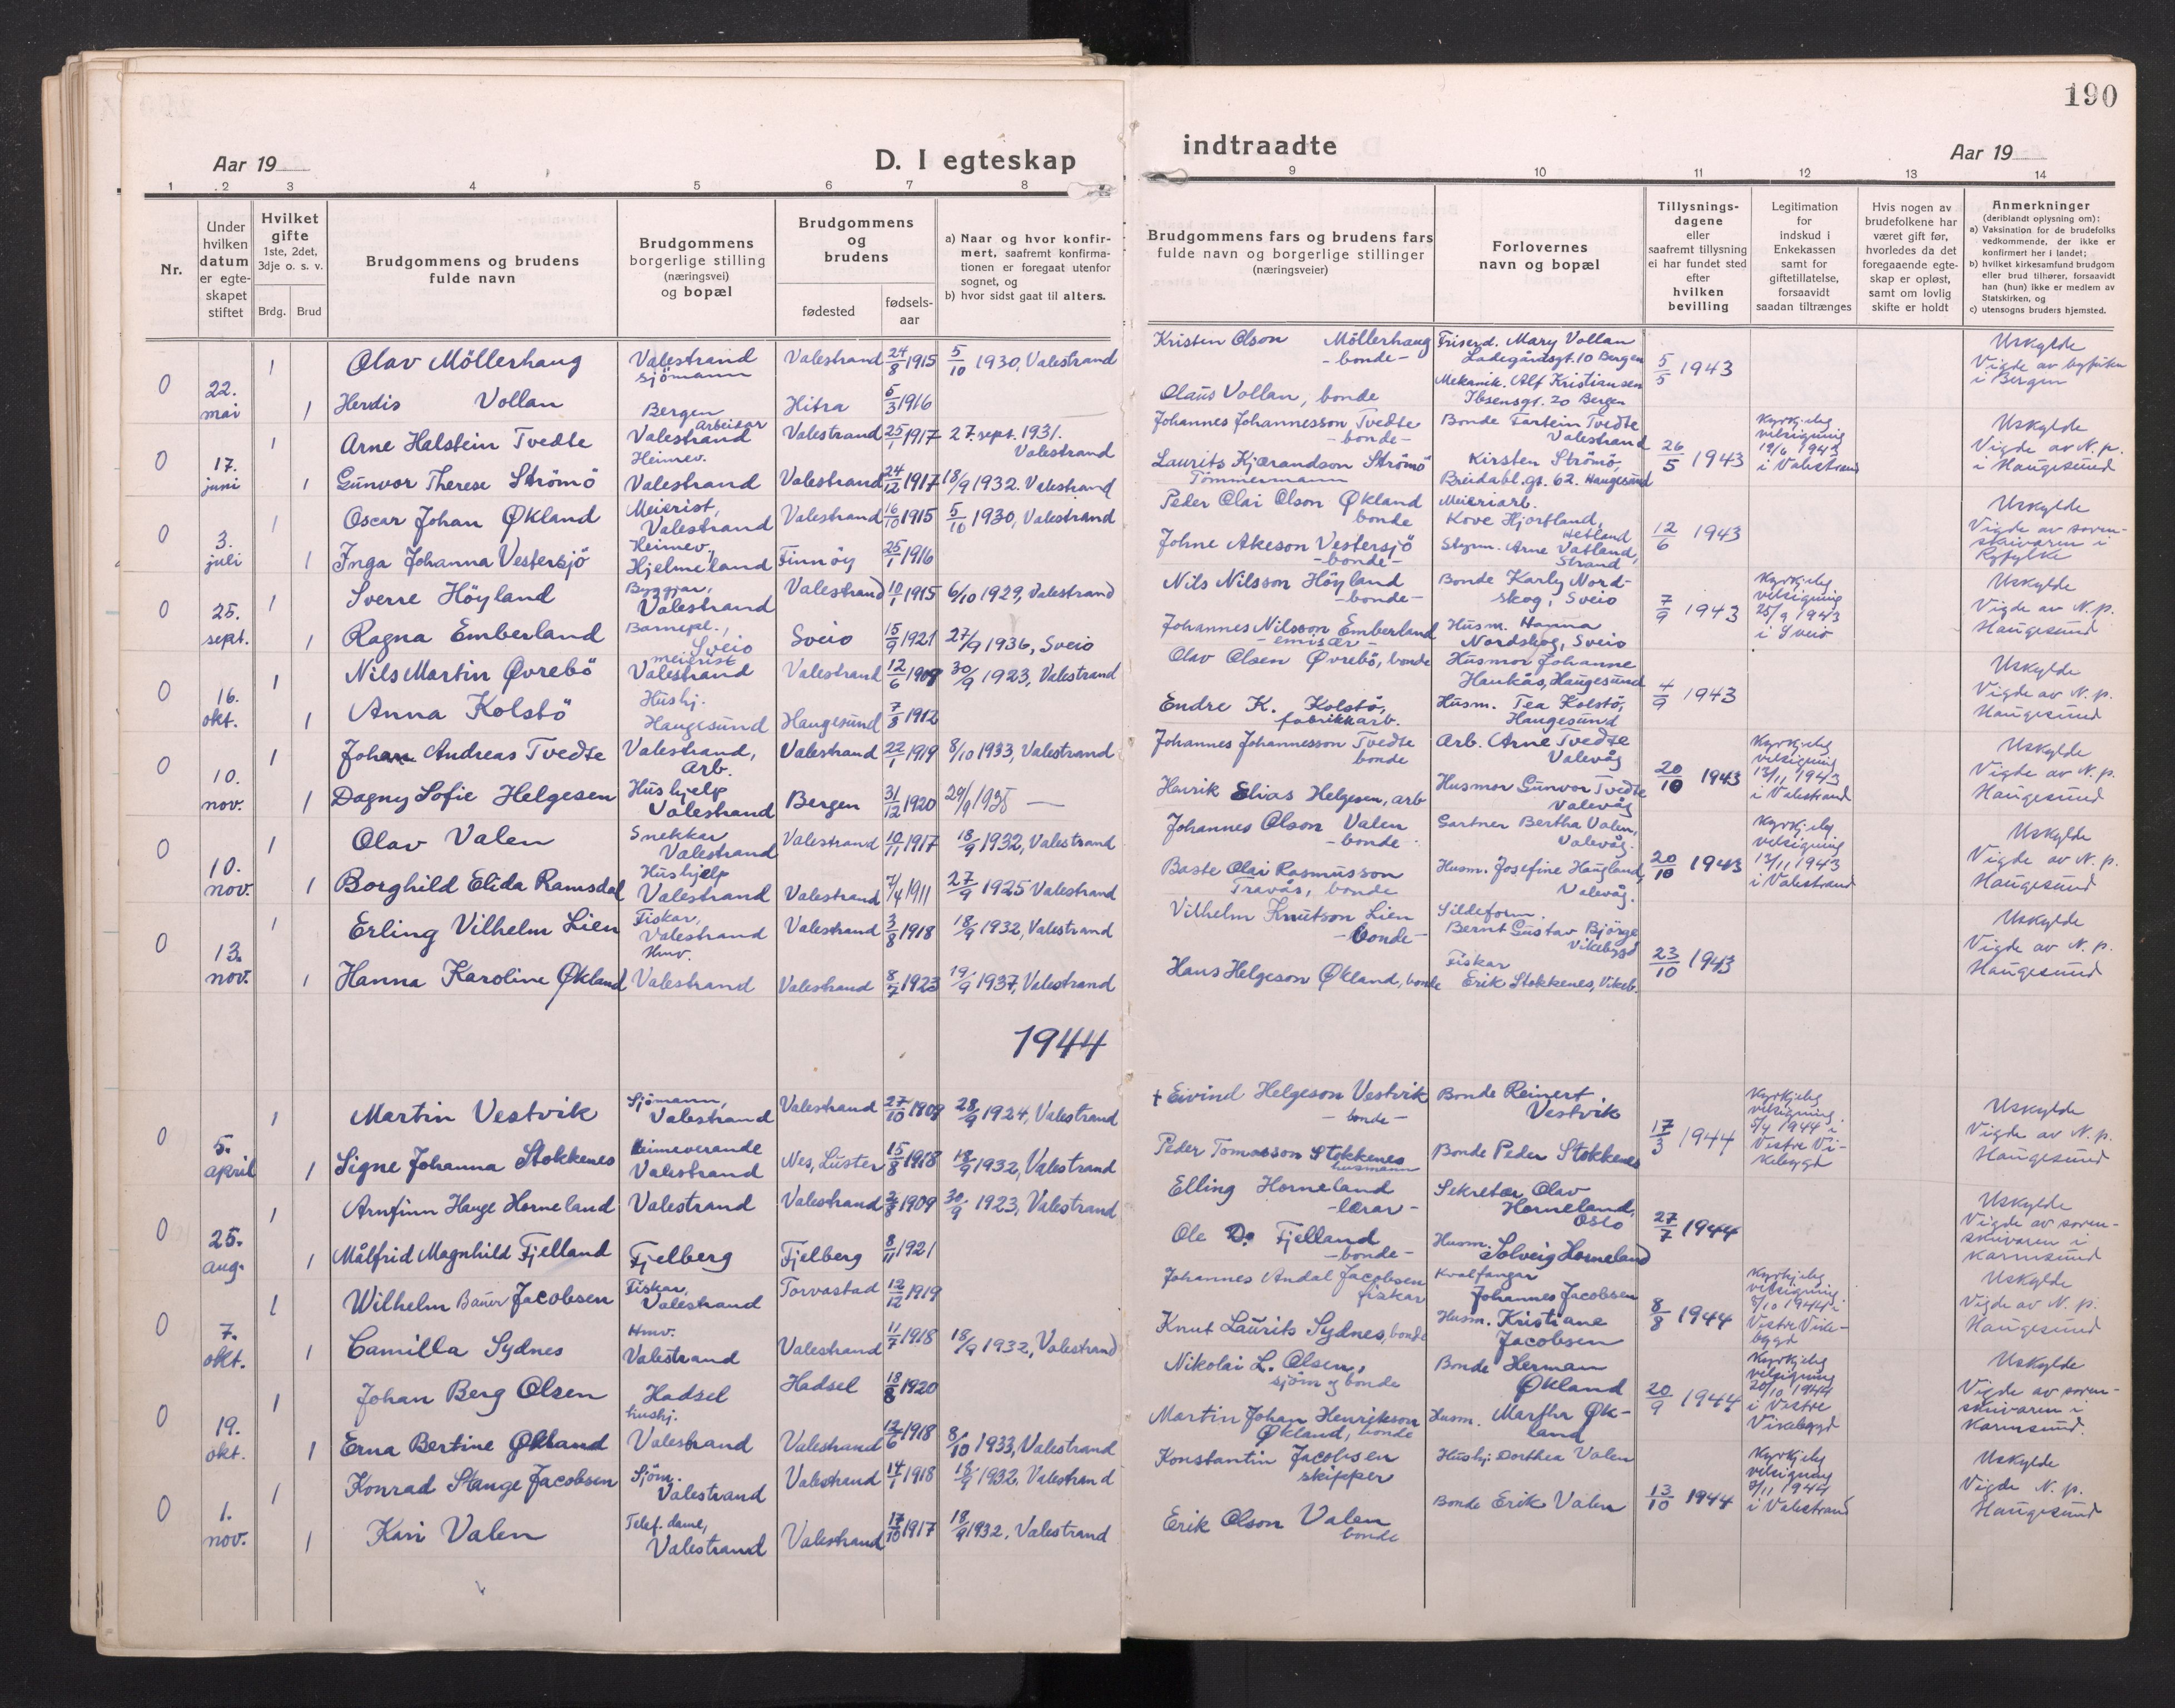 190
Aar 19
D. I egteskap
indtraadte
Aar 19
1 2 3 4 5 6 7 8 9 10 11 12 13 14
Nr.
Under hvilken datum er egteskapet stiftet
Hvilket gifte 1ste, 2det, 3dje o. s. v.
Brdg. Brud
Brudgommens og brudens fulde navn
Brudgommens borgerlige stilling (næringsvei) og bopæl
Brudgommens og brudens
fødested
fødsels-aar
a) Naar og hvor konfirmert, saafremt konfirmationen er foregaat utenfor sognet, og
b) hvor sidst gaat til alters.
Brudgommens fars og brudens fars fulde navn og borgerlige stillinger (næringsveier)
Forlovernes navn og bopæl
Tillysningsdagene eller saafremt tillysning ei har fundet sted efter hvilken bevilling
Legitimation for indskud i Enkekassen samt for giftetillatelse, forsaavidt saadan tiltrænges
Hvis nogen av brudefolkene har været gift før, hvorledes da det foregaaende egteskap er opløst, samt om lovlig skifte er holdt
Anmerkninger (deriblandt oplysning om):
a) Vaksination for de brudefolks vedkommende, der ikke er konfirmert her i landet;
b) hvilket kirkesamfund brudgom eller brud tilhører, forsaavidt han (hun) ikke er medlem av Statskirken, og
c) utensogns bruders hjemsted.
0 22. mai
1 Olav Möllerhaug Valestrand sjömann Valestrand 24/8 1915 5/10 1930, Valestrand
1 Herdis Vollan Bergen Hitra 5/3 1916
Kristen Olson Möllerhaug -bonde-
Olaus Vollan, bonde
Friserd. Mary Vollan Ladegårdsgt. 10 Bergen
Mekanik. Alf Kristiansen Ibsensgt. 20 Bergen
5/5 1943
Uskylde Vigde av byfuten i Bergen
0 17. juni
1 Arne Halstein Tvedte Arbeidar Valestrand Valestrand 25/1 1917 27. sept. 1931. Valestrand
1 Gunvor Therese Strömö Heimev. Valestrand Valestrand 24/12 1917 18/9 1932. Valestrand
Johannes Johannesson Tvedte -bonde-
Laurits Kjærandson Strömö Tömmermann
Bonde Tartein Tvedte Valestrand
Kirsten Strömö, Breidabl.gt. 62. Haugesund
26/5 1943
Kyrkjeleg velsigning 19/6 1943 i Valestrand
Uskylde Vigde av N. p. i Haugesund
0 3. juli
1 Oscar Johan Økland Meierist, Valestrand Valestrand 16/10 1915 5/10 1930, Valestrand
1 Inga Johanna Vestersjö Heimev., Hjelmeland Finnöy 25/1 1916
Peder Olai Olson Økland bonde
Johne Akeson Vestersjö -bonde-
Meieriarb. Kove Hjortland, Hetland
Styrm. Arne Vatland, Strand
12/6 1943
Uskylde Vigde av sorenskrivaren i Ryfylke
0 25. sept.
1 Sverre Höyland Byggjar, Valestrand Valestrand 10/1 1915 6/10 1929, Valestrand
1 Ragna Emberland Barnepl., Sveio Sveio 15/9 1921 27/9 1936, Sveio
Nils Nilsson Höyland -bonde-
Johannes Nilsson Emberland -emisær-
Bonde Karly Nordskog, Sveio
Husm. Hanna Nordskog, Sveio
7/9 1943
Kyrkjeleg velsigning 25/9 1943 i Sveio
Uskylde Vigde av N. p. Haugesund
0 16. okt.
1 Nils Martin Øvrebö meierist Valestrand Valestrand 12/6 1909 30/9 1923, Valestrand
1 Anna Kolstö Hushj. Haugesund Haugesund 7/8 1912
Olav Olsen Øvrebö, bonde
Endre K. Kolstö, fabrikkarb.
Husmor Johanne Haukås, Haugesund
Husm. Tea Kolstö, Haugesund
4/9 1943
Uskylde Vigde av N. p. Haugesund
0 10. nov.
1 Johan Andreas Tvedte Valestrand, Arb. Valestrand 22/1 1919 8/10 1933, Valestrand
1 Dagny Sofie Helgesen Hushjelp Valestrand Bergen 31/12 1920 29/9 1935 —
Johannes Johannesson Tvedte bonde
Henrik Elias Helgesen, arb
Arb. Arne Tvedte Valevåg
Husmor Gunvor Tvedte Valevåg
20/10 1943
Kyrkjeleg velsigning 13/11 1943 i Valestrand
Uskylde Vigde av N. p. Haugesund
0 10. nov.
1 Olav Valen Snekkar Valestrand Valestrand 10/11 1917 18/9 1932, Valestrand
1 Borghild Elida Ramsdal Hushjelp Valestrand Valestrand 7/4 1911 27/9 1925 Valestrand
Johannes Olson Valen -bonde-
Baste Olai Rasmusson Travås, bonde
Gartner Bertha Valen, Valevåg.
Husm. Josefine Haugland, Valevåg.
20/10 1943
Kyrkjeleg velsigning 13/11 1943 i Valestrand
Uskylde Vigde av N. p. Haugesund
0 13. nov.
1 Erling Vilhelm Lien Fiskar, Valestrand Valestrand 3/8 1918 18/9 1932, Valestrand
1 Hanna Karoline Økland Hmv. Valestrand Valestrand 8/7 1923 19/9 1937, Valestrand
Vilhelm Knutson Lien -bonde-
Hans Helgeson Økland, bonde
Sildeform. Bernt Gustav Bjørge Vikebygd
Fiskar Erik Stokkenes, Vikeb.
23/10 1943
Uskylde Vigde av N. p. Haugesund
1944
0 5. april
1 Martin Vestvik Sjömann, Valestrand Valestrand 27/10 1909 28/9 1924, Valestrand
1 Signe Johanna Stokkenes Heimeverande Valestrand Nes, Luster 15/8 1918 18/9 1932, Valestrand
+ Eivind Helgeson Vestvik -bonde-
Peder Tomasson Stokkenes husmann
Bonde Reinert Vestvik
Bonde Peder Stokkenes
17/3 1944
Kyrkjeleg velsigning 5/4 1944 i Vestre Vikebygd
Uskylde Vigde av N. p. Haugesund
0 25. aug.
1 Arnfinn Hauge Horneland Valestrand Valestrand 1909 30/9 1923, Valestrand
1 Målfrid Magnhild Fjelland Fjelberg Fjelberg 8/11 1921
Elling Horneland -lærar-
Ole D. Fjelland -bonde-
Sekretær Olav Horneland, Oslo
Husm. Solveig Horneland
27/7 1944
Uskylde Vigde av sorenskrivaren i Karmsund
0 7. okt.
1 Wilhelm Bauer Jacobsen Fiskar, Valestrand Torvastad 12/12 1919
1 Camilla Sydnes Hmv. Valestrand Valestrand 11/7 1918 18/9 1932, Valestrand
Johannes Andal Jacobsen fiskar
Knut Laurits Sydnes, bonde
Kvalfangar Johannes Jacobsen
Husm. Kristiane Jacobsen
8/8 1944
Kyrkjeleg velsigning 8/10 1944 i Vestre Vikebygd
Uskylde Vigde av N. p. Haugesund
0 19. okt.
1 Johan Berg Olsen Hadsel Hadsel 18/8 1920
1 Erna Bertine Økland hushj. Valestrand Valestrand 12/6 1918 8/10 1933, Valestrand
Nikolai L. Olsen, sjöm og bonde
Martin Johan Henrikson Økland, bonde
Bonde Herman Økland
Husm. Marthe Økland
20/9 1944
Kyrkjeleg velsigning 20/10 1944 i Vestre Vikebygd
Uskylde Vigde av sorenskrivaren i Karmsund.
0 1. nov.
1 Konrad Stange Jacobsen Sjöm. Valestrand Valestrand 14/1 1918 18/9 1932, Valestrand
1 Kari Valen Telef. dame, Valestrand Valestrand 17/10 1917 18/9 1932, Valestrand
Konstantin Jacobsen skipper
Erik Olson Valen bonde
Hushj. Dorthea Valen
Bonde Erik Valen
13/10 1944
Kyrkjeleg velsigning 1944 i Valestrand
Uskylde Vigde N. p. Haugesund